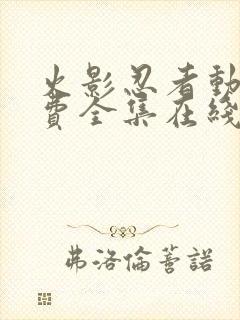 火影忍者動
費全集在綫
弗洛倫蒂諾